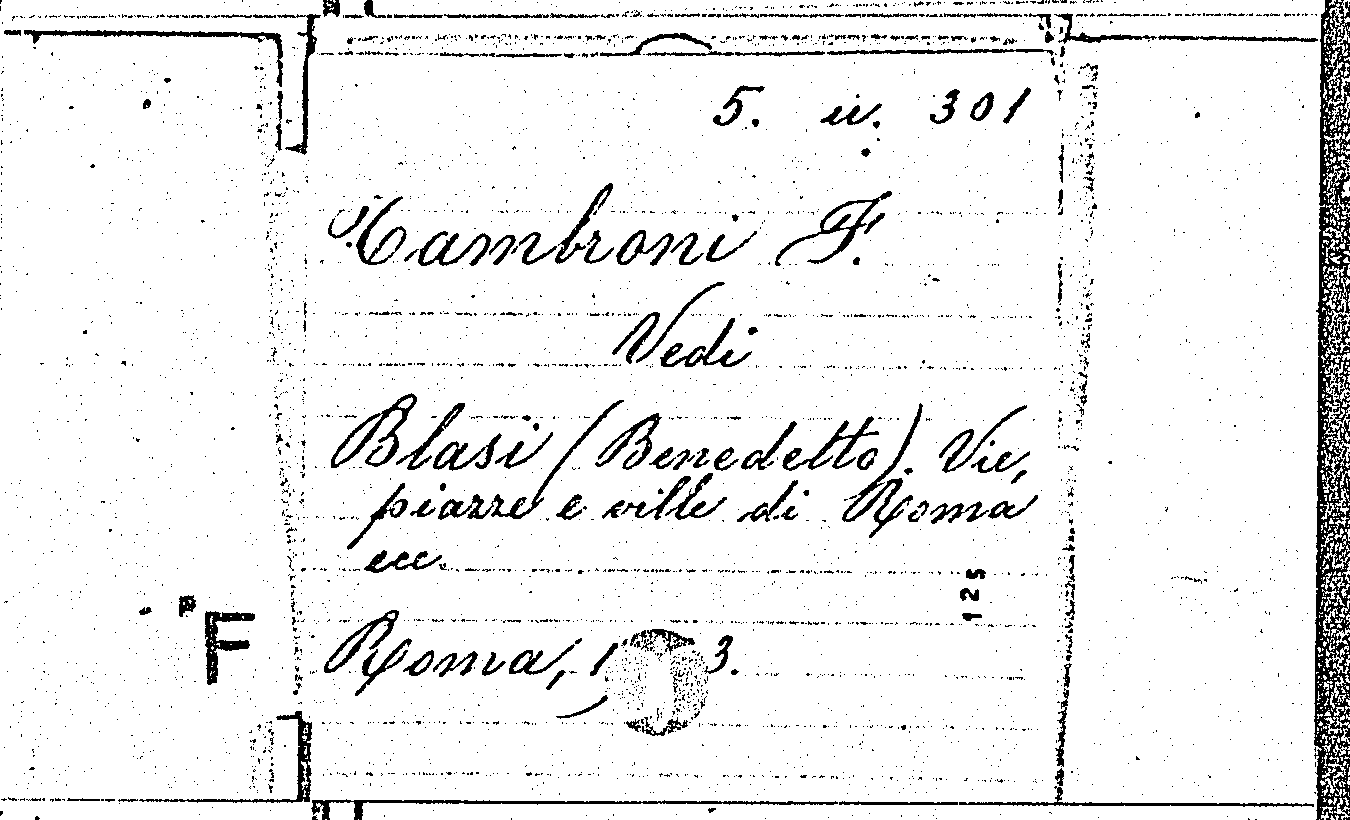 5. 301
Tambroni F.
Vedi
Blasi (Benedetto). Vie,
piazze e ville di Roma
ecc.
125
F
Roma, 1 3.